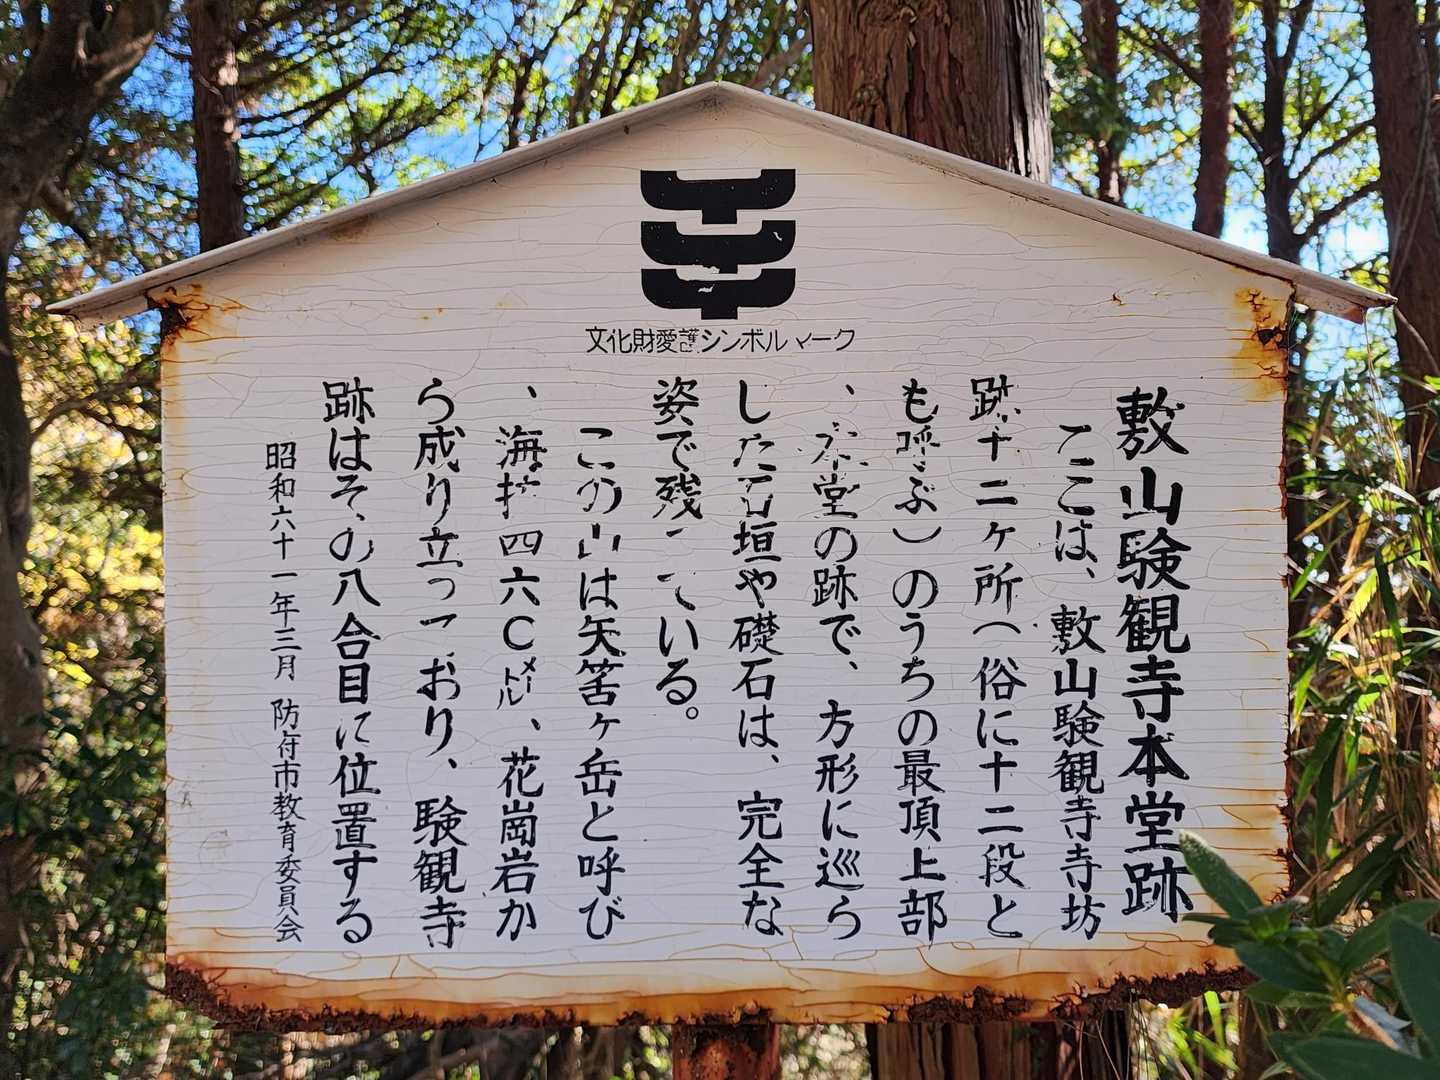 文化財愛護シンボルマーク
敷山験観寺本堂跡
ここは、敷山験観寺寺坊
跡十二ヶ所(俗に十二段と
も呼ぶ)のうちの最頂上部
、本堂の跡で、方形に巡ら
した石垣や礎石は、完全な
姿で残っている。
この山は矢筈ヶ岳と呼び
、海抜四六〇メートル、花崗岩か
ら成り立っており、験観寺
跡はその八合目に位置する
昭和六十一年三月 防府市教育委員会